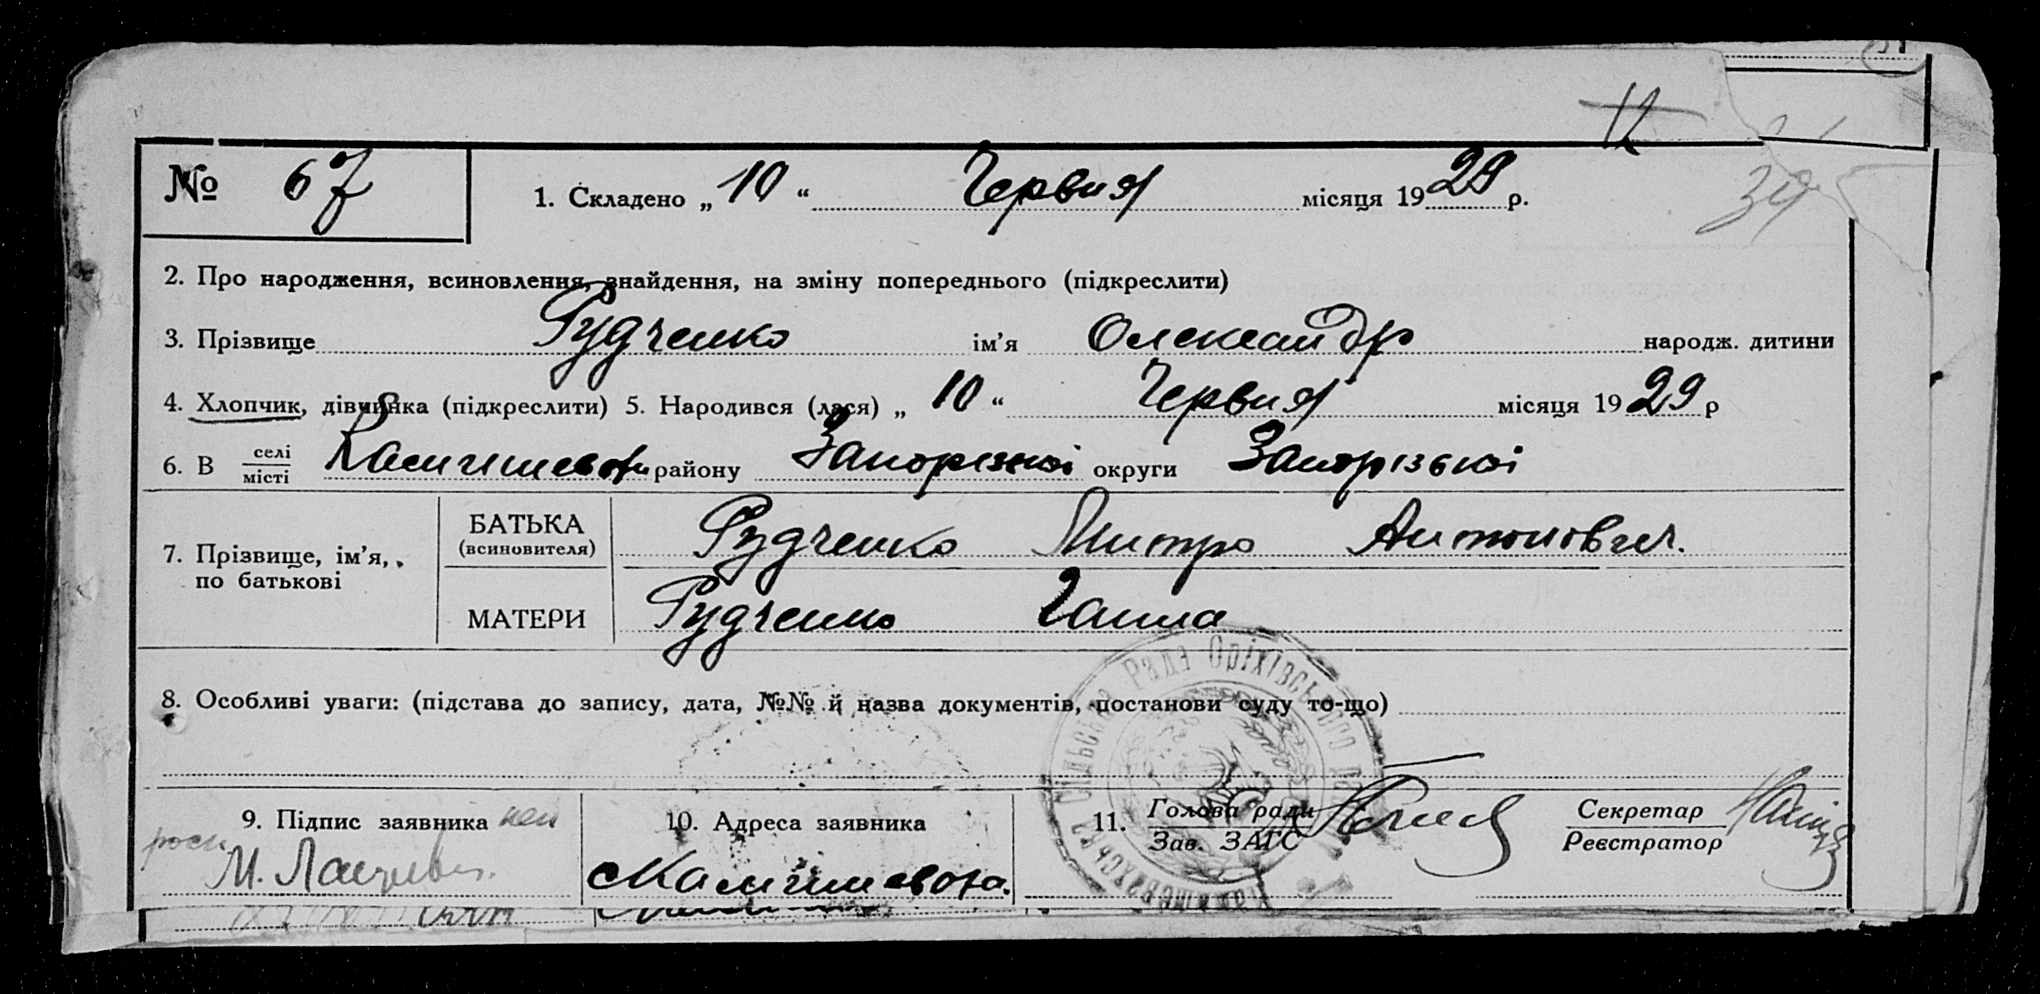 № 67 1. Складено „ 10 “ Червня місяця 1929 р.
39
2. Про народження, всиновлення, знайдення, на зміну попереднього (підкреслити)
3. Прізвище Рудченко ім’я Олександр народж. дитини
4. Хлопчик, дівчинка (підкреслити) 5. Народився (лася) „ 10 “ Червня місяця 1929 р
6. В селі місті району Запорізької округи Запорізької
7. Прізвище, ім’я, по батькові
БАТЬКА (всиновителя) Рудченко Митро Антонович.
МАТЕРИ Рудченко Ганна
Сільська Рада Оріхівського
8. Особливі уваги: (підстава до запису, дата, №№ й назва документів, постанови суду то-що)
9. Підпис заявника 10. Адреса заявника 11. Голова ради Секретар
Зав. ЗАГС Реєстратор